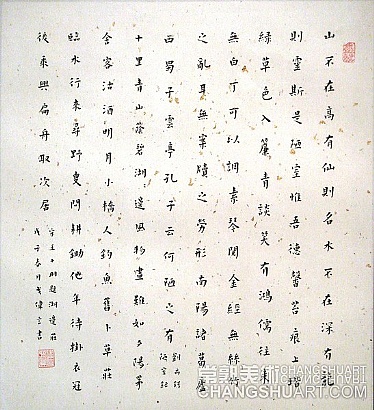 山不在高有仙則名水不在深有龍
則靈斯是陋室惟吾德馨苔痕上階
緑草色入簾青談笑有鴻儒往来
無白丁可以調素琴閱金經無絲竹
之亂耳無案牘之勞形南陽諸葛廬
西蜀子雲亭孔子云何陋之有
劉禹錫
陋室銘
十里青山蔭碧湖邊風物畫難如夕陽茅
舍客沽酒明月小橋人釣魚舊卜草莊
臨水行来尋野叟問耕鋤他年待掛衣冠
後乘興扁舟取次居
宋王十朋題湖邊莊
戊子春月戈偉書
常熟美术
CHANGSHUART.COM